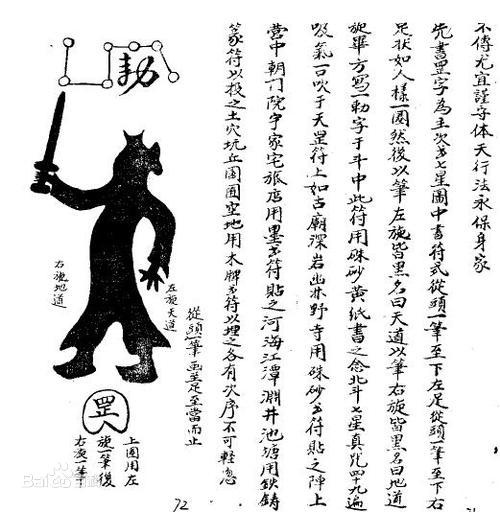 不傳尤宜謹守体天行法永保身家
先書罡字為主次書七星圖中書符式從頭一筆至下左足從頭一筆至下右
足狀如人樣一圓然後以筆左旋皆黑名曰天道以筆右旋皆黑名曰地道
旋畢方寫一勅字于斗中此符用硃砂黃紙書之念北斗七星真咒四十九遍
吸氣一口吹于天罡符上如古廟深岩幽野寺用硃砂書符貼之陣上
營中朝門院宇家宅旅店用墨書符貼之河海江潭淵井池塘用鉄鑄
篆符以投之土穴坑丘園囿空地用木牌書符以埋之各有次序不可輕忽
從頭一筆画至足至當而止
勅
左旋天道
右旋地道
罡
上圓用左
旋一筆後
右旋一筆
72
Baidu百科